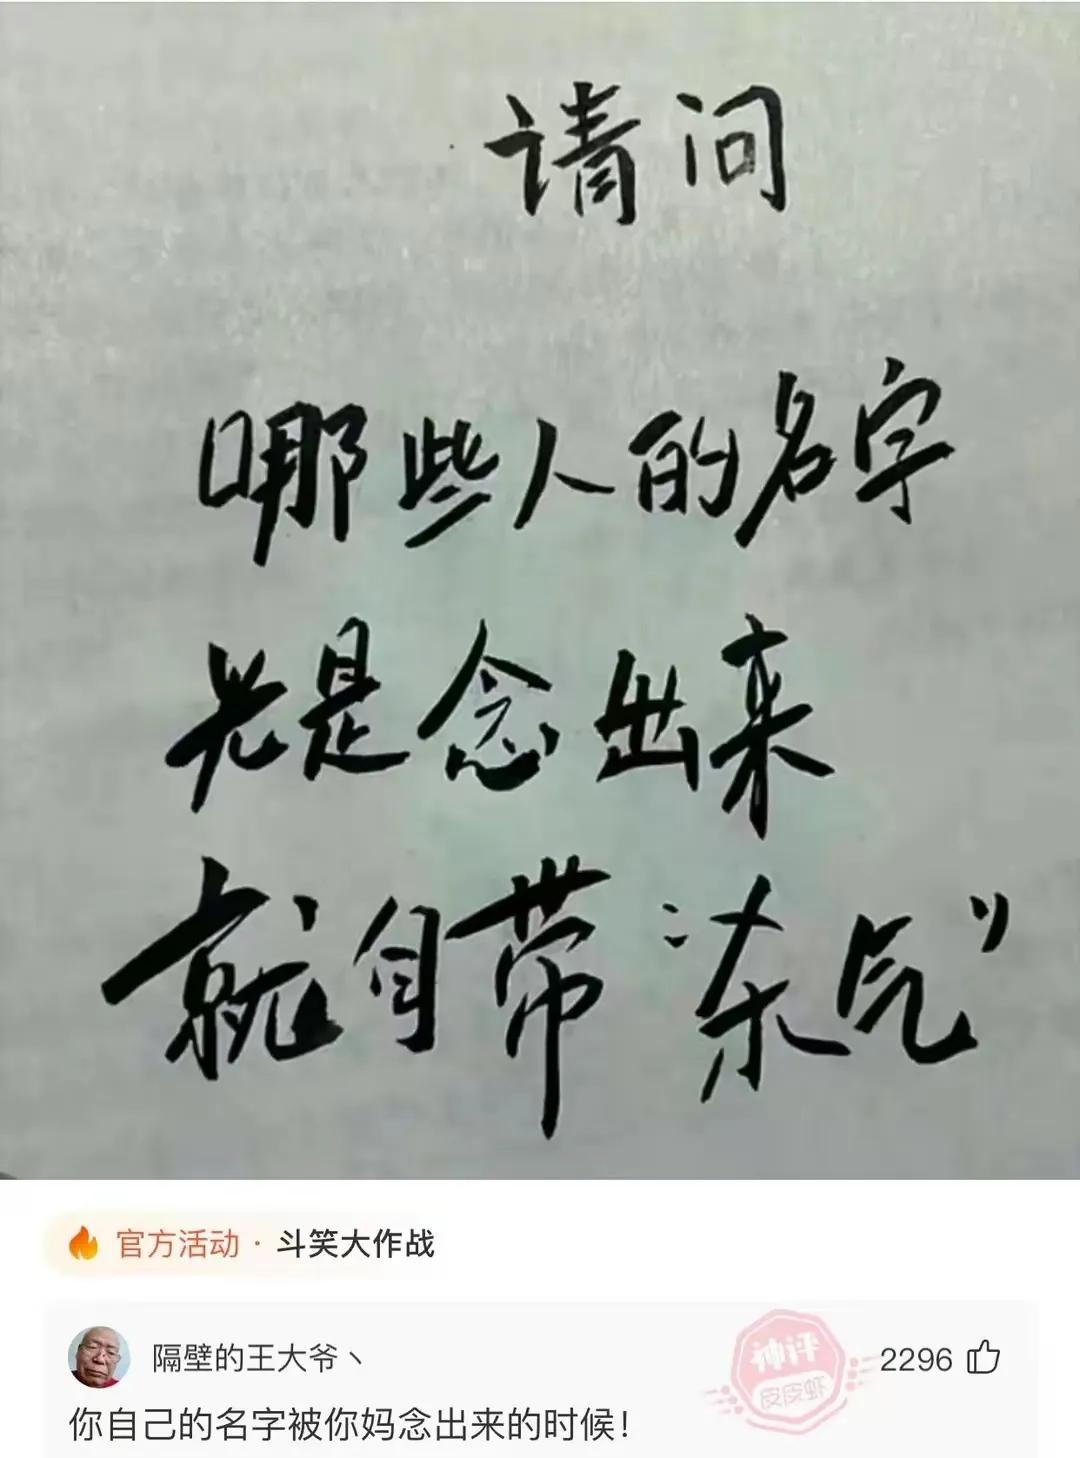 请问
哪些人的名字
光是念出来
就自带“杀气”
官方活动 · 斗笑大作战
隔壁的王大爷丶
神评
皮皮虾
2296
你自己的名字被你妈念出来的时候！